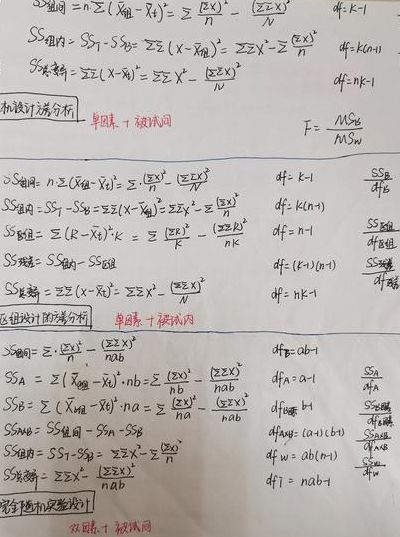 SS组间 = n·Σ(X̄组-X̄t)² = Σ (ΣX)²/n - (ΣΣX)²/N df = k-1
SS组内 = SST - SSB = ΣΣ(X-X̄组)² = ΣΣX² - Σ (ΣX)²/n df = k(n-1)
SS总变异 = ΣΣ(X-X̄t)² = ΣΣX² - (ΣΣX)²/N df = nk-1
机设计方差分析 单因素+被试间 F = MSB/MSW
SS组间 = n·Σ(X̄组-X̄t)² = Σ (ΣX)²/n - (ΣΣX)²/N df = k-1 SSB/dfB
SS组内 = ST - SSB = ΣΣ(X-X̄组)² = ΣΣX² - Σ (ΣX)²/n df = k(n-1)
SS区组 = Σ(R-X̄t)²·K = Σ (ΣR)²/K - (ΣΣR)²/nk df = n-1 SS区组/df区组
SS残差 = SS组内 - SS区组 df = (k-1)(n-1) SS残差/df残差
SS总变异 = ΣΣ(X-X̄t)² = ΣΣX² - (ΣΣX)²/N df = nk-1
区组设计的方差分析 单因素+被试内
SS组间 = Σ·(ΣX)²/n - (ΣΣX)²/nab dfB = ab-1
SSA = Σ(X̄a组-X̄t)²·nb = Σ (ΣX)²/nb - (ΣΣX)²/nab dfA = a-1 SSA/dfA
SSB = Σ(X̄b组-X̄t)²·na = Σ (ΣX)²/na - (ΣΣX)²/nab b-1
SSA×B = SS组间 - SSA - SSB dfA×B = (a-1)(b-1) SSA×B/dfA×B
SS组内 = SST - SSB = ΣΣX² - Σ (ΣX)²/n dfw = ab(n-1) SSw/dfw
SS总变异 = ΣΣX² - (ΣΣX)²/nab dfT = nab-1
完全随机实验设计
双因素+被试间